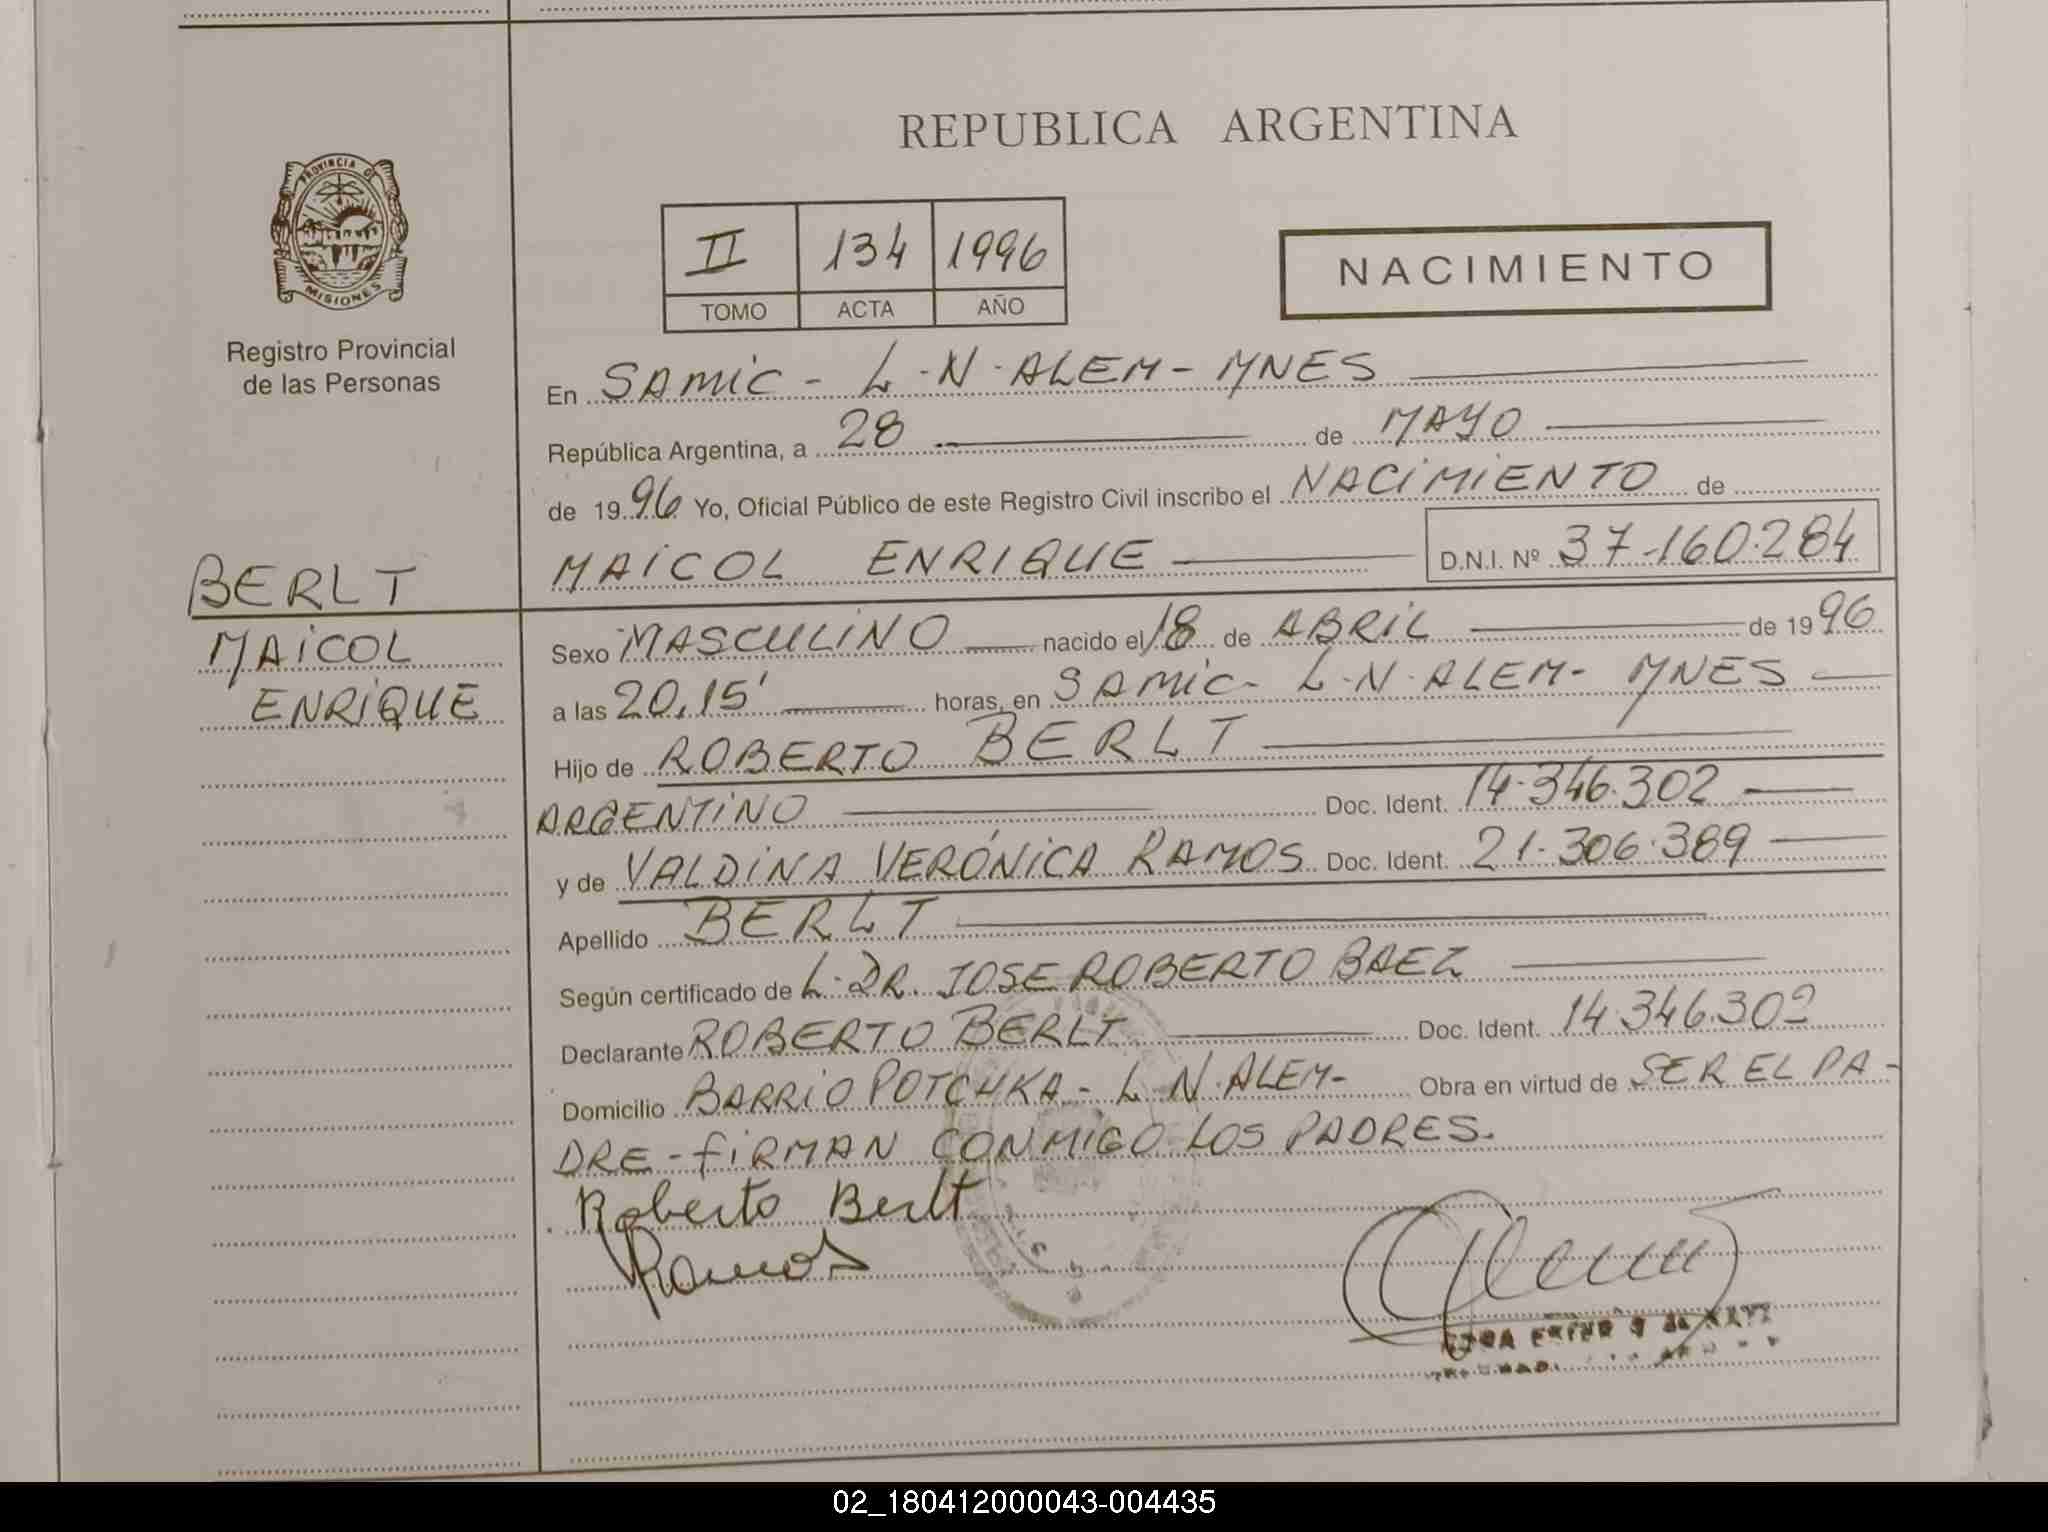 REPUBLICA ARGENTINA
PROVINCIA DE
MISIONES
Registro Provincial
de las Personas
II 134 1996
TOMO ACTA AÑO
NACIMIENTO
En SAMIC - L.N. ALEM - MNES
República Argentina, a 28 de MAYO
de 1996 Yo, Oficial Público de este Registro Civil inscribo el NACIMIENTO de
MAICOL ENRIQUE D.N.I. Nº 37.160.284
BERLT
MAICOL
ENRIQUE
Sexo MASCULINO nacido el 18 de ABRIL de 1996
a las 20,15' horas, en SAMIC - L.N. ALEM - MNES
Hijo de ROBERTO BERLT
ARGENTINO Doc. Ident. 14.346.302
y de VALDINA VERÓNICA RAMOS Doc. Ident. 21.306.389
Apellido BERLT
Según certificado de L. DR. JOSE ROBERTO BAEZ
Declarante ROBERTO BERLT Doc. Ident. 14.346.302
Domicilio BARRIO POTCHKA - L.N. ALEM - Obra en virtud de SER EL PA-
DRE - FIRMAN CONMIGO LOS PADRES.
Roberto Berlt
Ramos
02_180412000043-004435